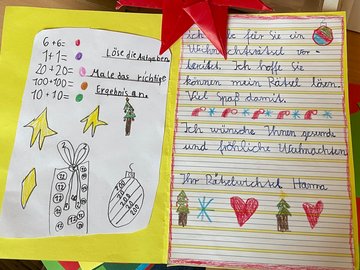 6 + 6 =
1 + 1 =
20 + 20 =
100 + 100 =
10 + 10 =
Löse die Aufgaben
Male das richtige
Ergebnis an.
12 12
12 12
12 12
200
200
200
200
Ich für Sie ein
Weihnachtsrätsel vor-
bereitet. Ich hoffe Sie
können mein Rätsel lösen.
Viel Spaß damit.
Ich wünsche Ihnen gesunde
und fröhliche Weihnachten
Ihr Rätselwichtel Hanna